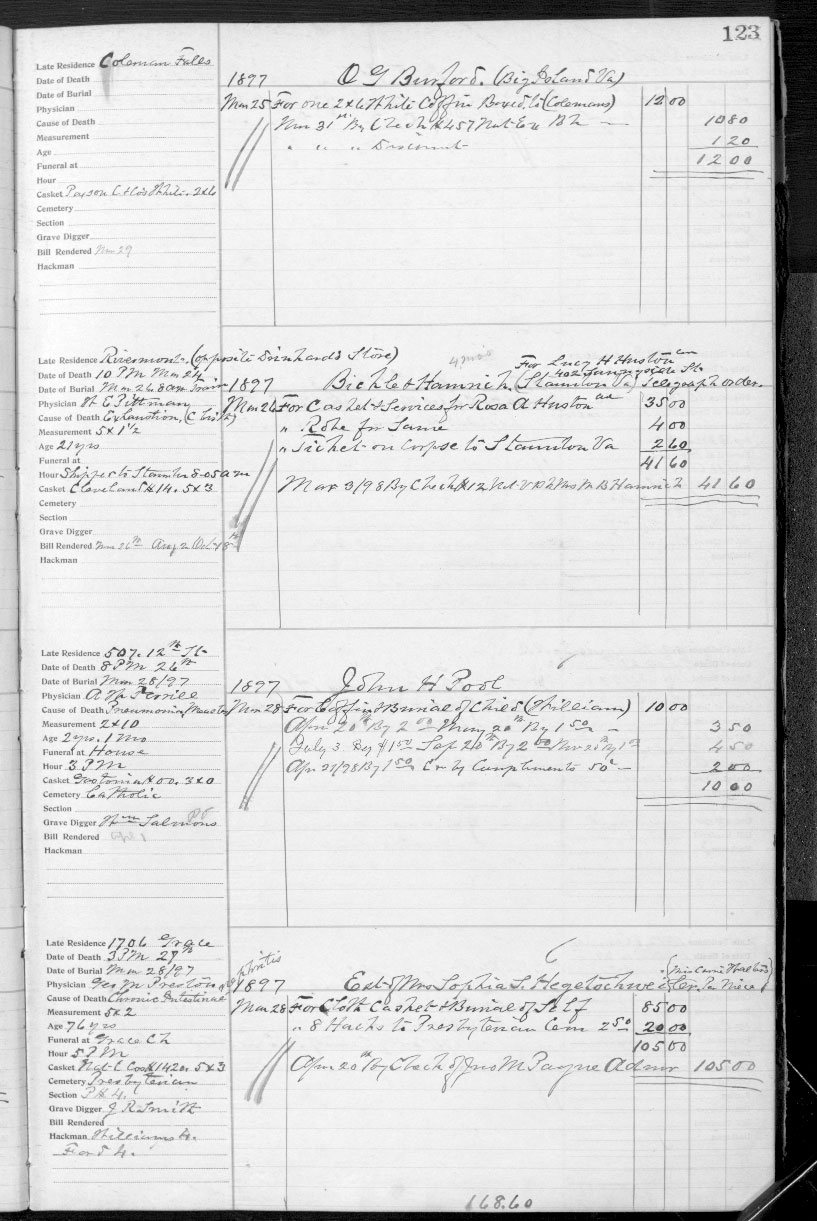 123
Late Residence Coleman Falls
Date of Death
Date of Burial
Physician
Cause of Death
Measurement
Age
Funeral at
Hour
Casket Payson C & Co's White. 2x6
Cemetery
Section
Grave Digger
Bill Rendered Mar 29
Hackman
1897 O G Burford. (Big Island Va)
Mar 25 For one 2x6 White Coffin Boxed. to (Colemans) 12 00
Mar 31st By Check #457 Nat Ex Bk — 10 80
" " " Discount 1 20
12 00
Late Residence Rivermont. (opposite Store)
Date of Death 10 PM Mar 24
Date of Burial Mar 26. 8 am Train
Physician W E Pittman
Cause of Death Exhaustion, (C )
Measurement 5x1 1/2
Age 21 yrs
Funeral at
Hour Shipped to Staunton 8-05 am
Casket Cleveland #14. 5x3
Cemetery
Section
Grave Digger
Bill Rendered Mar 26th Aug 2 Oct 18th
Hackman
4 mos
For Lucy H Huston
402 Sunnyside St.
1897 Bickle & Hamrick, (Staunton Va) Telegraph order.
Mar 26 For Casket & Services for Rosa A Huston 35 00
" Robe for Same 4 00
" Ticket on Corpse to Staunton Va 2 60
41 60
Mar 3/98 By Check #12 Nat V Bk Mrs M B Hamrick 41 60
Late Residence 507. 12th St
Date of Death 8 PM 26th
Date of Burial Mar 28/97
Physician A W Terrill
Cause of Death Pneumonia, Measles
Measurement 2x10
Age 2 yrs. 1 Mo
Funeral at House
Hour 3 PM
Casket Gastonia #00. 3x0
Cemetery Catholic
Section
Grave Digger Wm Salmons Pd
Bill Rendered
Hackman
1897 John H Pool
Mar 28 For Coffin & Burial of Child (William) 10 00
Apr 20th By 2 00 May 20th By 1 50 — 3 50
July 3 By #1 50 Sep 20th By 2 00 Nov 20th By 1 00 4 50
Apr 21/98 By 1 50 Cr by Compliments 50c — 2 00
10 00
Late Residence 1706 Grace
Date of Death 3 PM 27th
Date of Burial Mar 28/97
Physician Geo M Preston
Cause of Death Chronic Intestinal
Measurement 5x2
Age 76 yrs
Funeral at Grace Ch
Hour 5 PM
Casket Nat C Co #1420. 5x3
Cemetery Presbyterian
Section P H 4.
Grave Digger J R Smith
Bill Rendered
Hackman Williams 4.
Ford 4.
1897 Est of Mrs Sophia L. Hegetschweiler. Per Niece
Mar 28 For Cloth Casket & Burial of Self 85 00
" 8 Hacks to Presbyterian Cem 2 50 20 00
105 00
Apr 20th By Check of Jno M Payne Admr 105 00
168.60